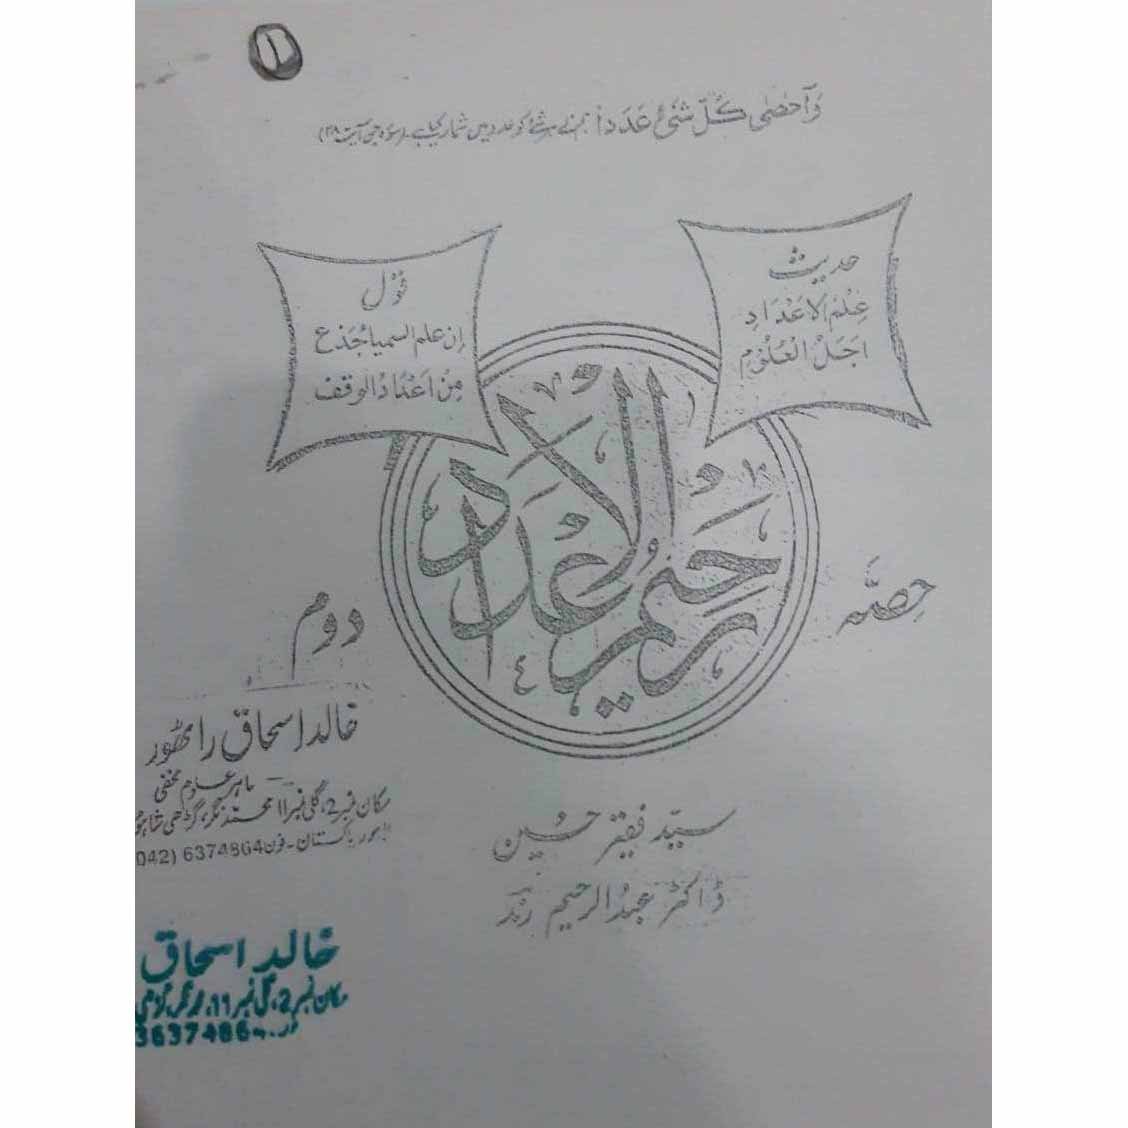 ۱
وَاَحْصٰی کُلَّ شَیْءٍ عَدَدًا ہم نے ہر شئے کو عدد میں شمار کیا ہے۔ (سورہ جن آیت ۲۸)
حدیث
عِلْمُ الْاَعْدَادِ
اَجَلُّ الْعُلُوْمِ
قول
اِن علم السمیا جُذع
مِنْ اَعْدَادُ الوقف
رحیم الاعداد
حِصّہ
دوم
خالد اسحاق راٹھور
ماہر علوم مخفی
مکان نمبر 2، گلی نمبر 11 محمد نگر، گڑھی شاہو
لاہور پاکستان۔ فون 6374864 (042
سیّد فقیر حسین
ڈاکٹر عبدالرحیم رند
خالد اسحاق
مکان نمبر 2، گلی نمبر 11،
3637486